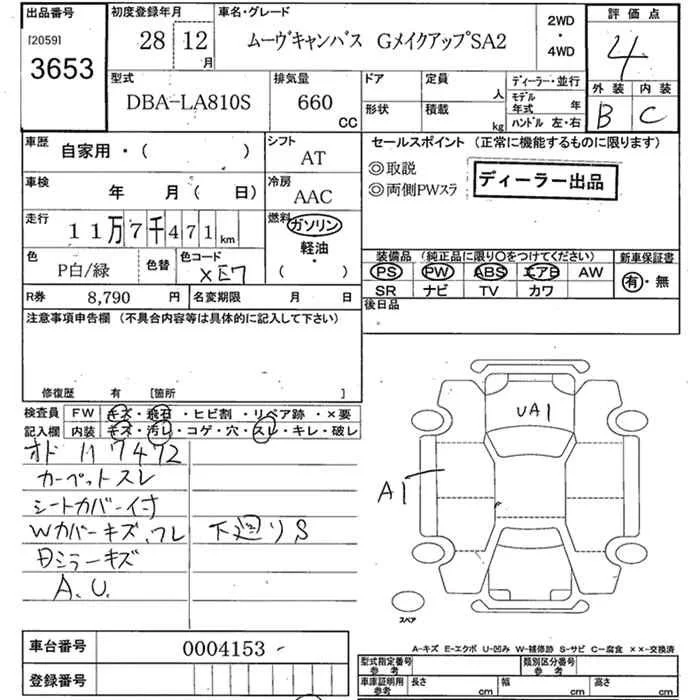 出品番号 初度登録年月 車名・グレード 2WD・4WD 評価点
[2059] 3653 28 12月 ムーヴキャンバス GメイクアップSA2 4
型式 排気量 ドア 定員 人 ディーラー・並行 外装 内装
DBA-LA810S 660 CC 形状 積載 kg モデル年式 年 ハンドル 左・右 B C
車歴 自家用・( ) シフト AT セールスポイント (正常に機能するものに限ります)
車検 年 月( 日) 冷房 AAC ◎取説
◎両側PWスラ ディーラー出品
走行 11万7千471km 燃料 ガソリン 軽油・( )
色 P白/緑 色替 色コード XE7
装備品 (純正品に限り○をつけてください) 新車保証書
PS PW ABS エアB AW 有・無
SR ナビ TV カワ
R券 8,790 円 名変期限 月 日 後日品
注意事項申告欄 (不具合内容等は具体的に記入して下さい)
修復歴 有 [箇所 ]
検査員 FW キズ・飛石・ヒビ割・リペア跡・×要
記入欄 内装 キズ・汚レ・コゲ・穴・スレ・キレ・破レ
オド 117472
カーペットスレ
シートカバー付
Wカバーキズ、ワレ 下廻りS
日シラーキズ
A.U.
UA1
A1
スペア
車台番号 0004153
登録番号
A-キズ E-エクボ U-凹み W-補修跡 S-サビ C-腐食 ××-交換済
型式指定番号 参考 類別区分番号 参考
車庫証明用 参考 長さ cm 幅 cm 高さ cm